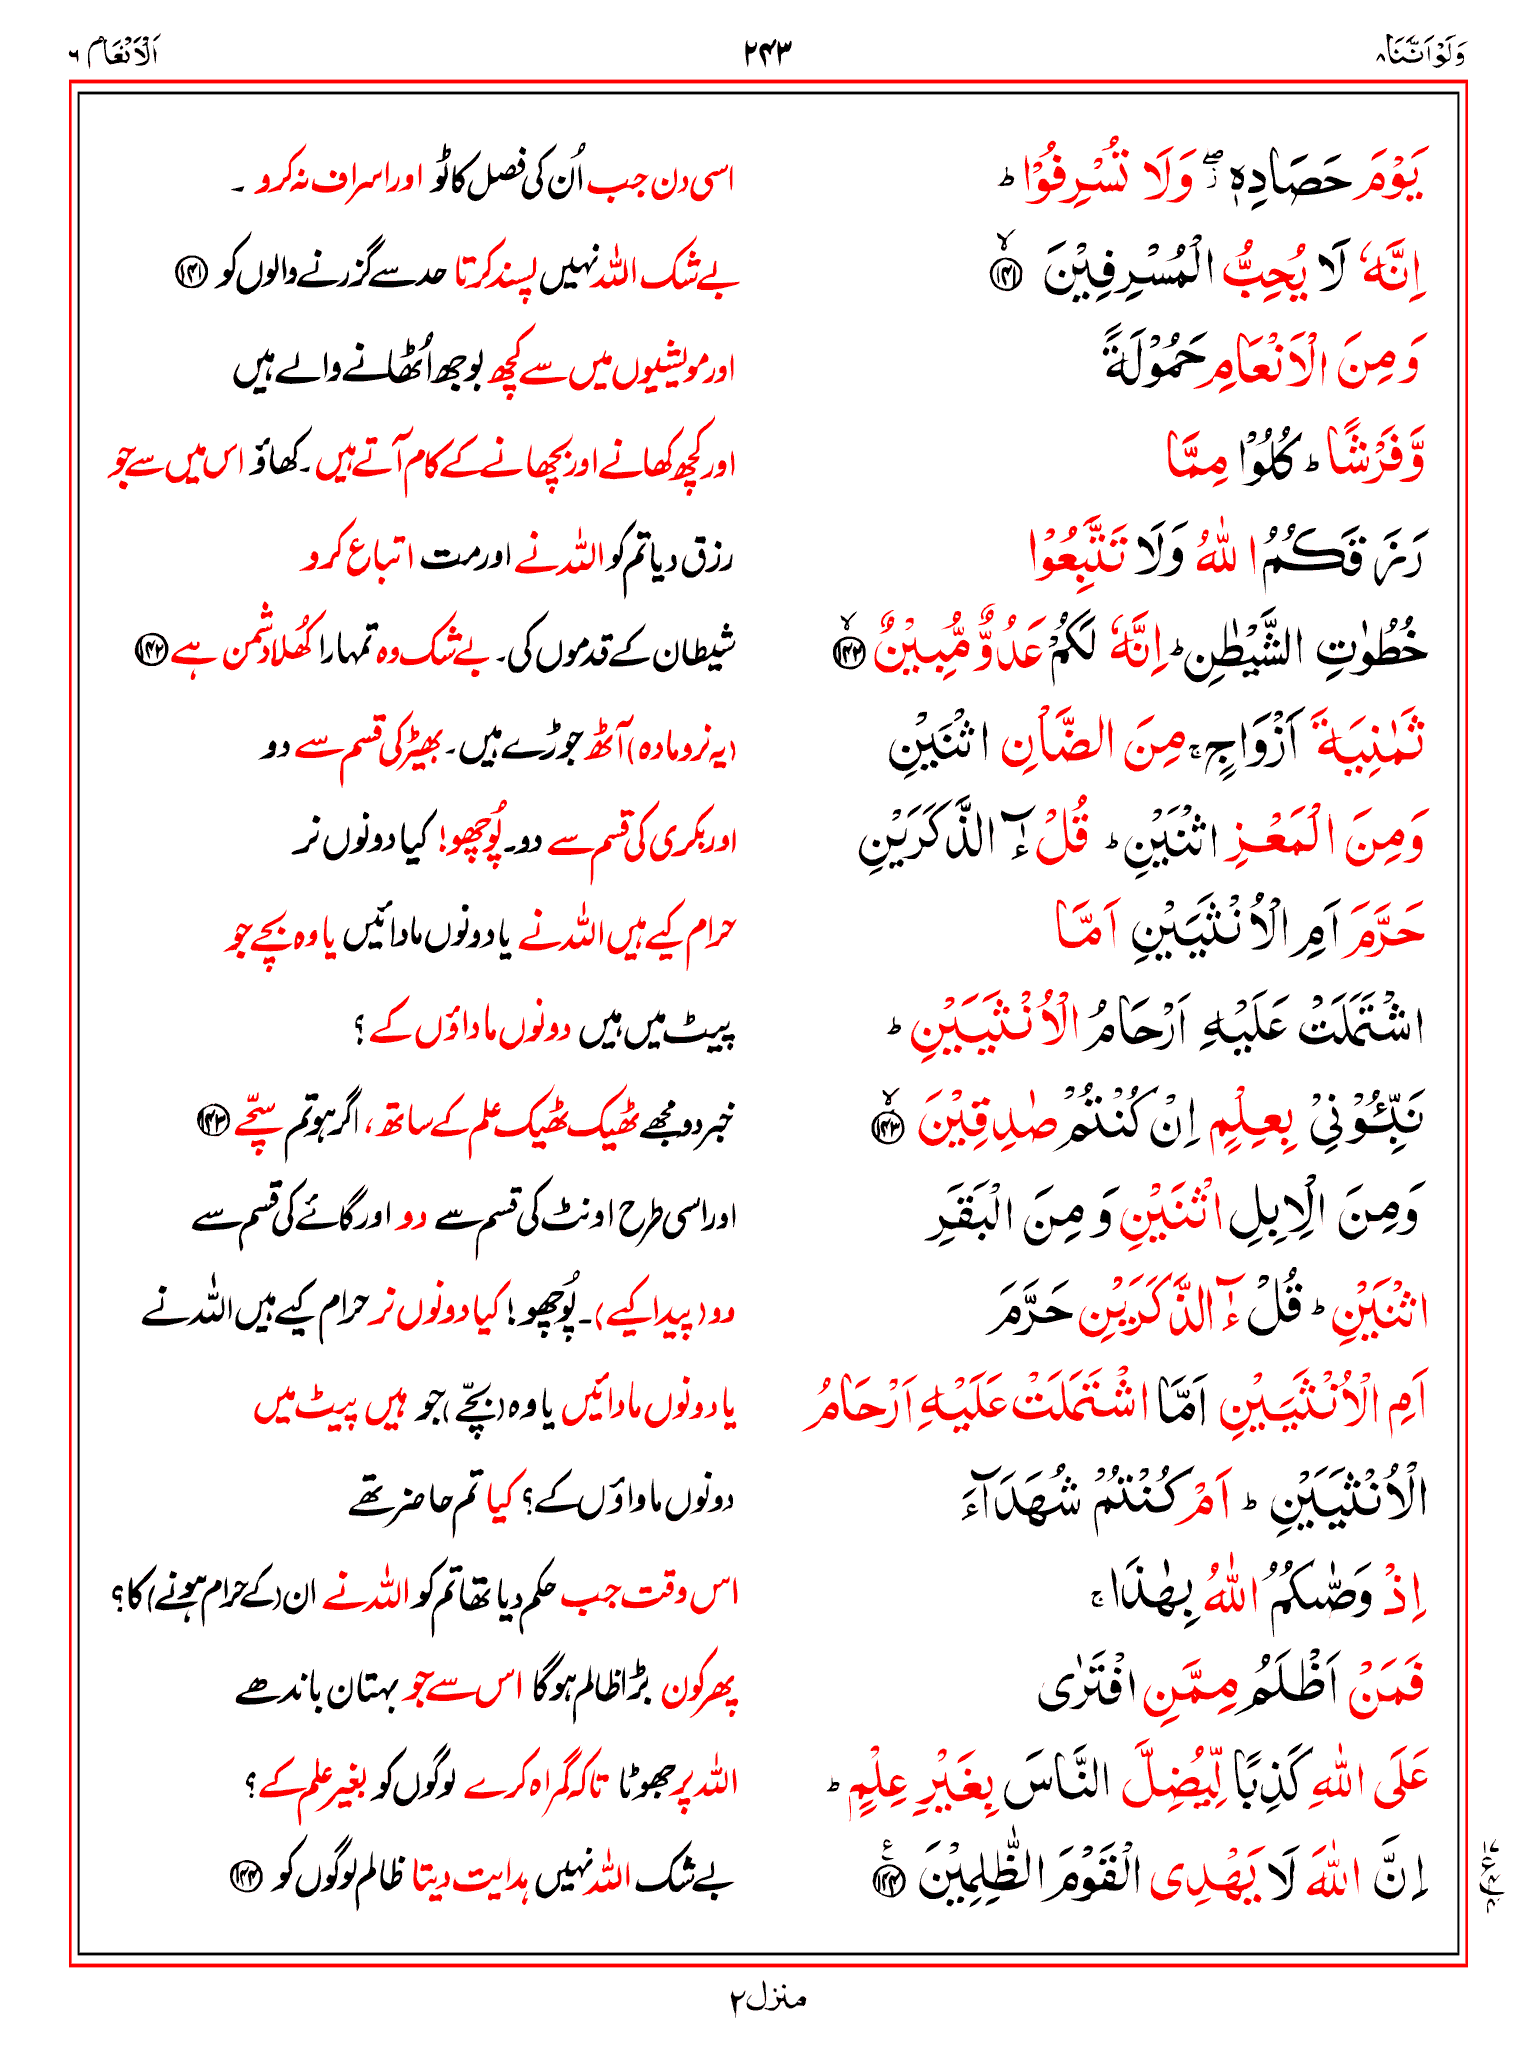 وَلَوْ اَنَّنَا ۸
۲۴۳
اَلْاَنْعَام ۶
يَوْمَ حَصَادِهٖ ۖز وَلَا تُسْرِفُوْا ؕ
اسی دن جب اُن کی فصل کاٹو اور اسراف نہ کرو ۔
اِنَّهٗ لَا يُحِبُّ الْمُسْرِفِيْنَ ۙ﴿۱۴۱﴾
بے شک اللہ نہیں پسند کرتا حد سے گزرنے والوں کو ﴿۱۴۱﴾
وَ مِنَ الْاَنْعَامِ حَمُوْلَةً
اور مویشیوں میں سے کچھ بوجھ اُٹھانے والے ہیں
وَّفَرْشًا ؕ كُلُوْا مِمَّا
اور کچھ کھانے اور بچھانے کے کام آتے ہیں۔ کھاؤ اس میں سے جو
رَزَقَكُمُ اللّٰهُ وَلَا تَتَّبِعُوْا
رزق دیا تم کو اللہ نے اور مت اتباع کرو
خُطُوٰتِ الشَّيْطٰنِ ؕ اِنَّهٗ لَكُمْ عَدُوٌّ مُّبِيْنٌ ۙ﴿۱۴۲﴾
شیطان کے قدموں کی۔ بے شک وہ تمہارا کُھلا دشمن ہے ﴿۱۴۲﴾
ثَمٰنِيَةَ اَزْوَاجٍ ۚ مِنَ الضَّاْنِ اثْنَيْنِ
(یہ نر و مادہ) آٹھ جوڑے ہیں۔ بھیڑ کی قسم سے دو
وَمِنَ الْمَعْزِ اثْنَيْنِ ؕ قُلْ ءٰٓالذَّكَرَيْنِ
اور بکری کی قسم سے دو۔ پُوچھو! کیا دونوں نر
حَرَّمَ اَمِ الْاُنْثَيَيْنِ اَمَّا
حرام کیے ہیں اللہ نے یا دونوں مادائیں یا وہ بچے جو
اشْتَمَلَتْ عَلَيْهِ اَرْحَامُ الْاُنْثَيَيْنِ ؕ
پیٹ میں ہیں دونوں ماداؤں کے ؟
نَبِّـُٔوْنِيْ بِعِلْمٍ اِنْ كُنْتُمْ صٰدِقِيْنَ ۙ﴿۱۴۳﴾
خبر دو مجھے ٹھیک ٹھیک علم کے ساتھ، اگر ہو تم سچّے ﴿۱۴۳﴾
وَمِنَ الْاِبِلِ اثْنَيْنِ وَ مِنَ الْبَقَرِ
اور اسی طرح اونٹ کی قسم سے دو اور گائے کی قسم سے
اثْنَيْنِ ؕ قُلْ ءٰٓالذَّكَرَيْنِ حَرَّمَ
دو (پیدا کیے)۔ پُوچھو! کیا دونوں نر حرام کیے ہیں اللہ نے
اَمِ الْاُنْثَيَيْنِ اَمَّا اشْتَمَلَتْ عَلَيْهِ اَرْحَامُ
یا دونوں مادائیں یا وہ (بچّے) جو ہیں پیٹ میں
الْاُنْثَيَيْنِ ؕ اَمْ كُنْتُمْ شُهَدَآءَ
دونوں ماداؤں کے؟ کیا تم حاضر تھے
اِذْ وَصّٰىكُمُ اللّٰهُ بِهٰذَا ۚ
اس وقت جب حکم دیا تھا تم کو اللہ نے ان (کے حرام ہونے) کا؟
فَمَنْ اَظْلَمُ مِمَّنِ افْتَرٰى
پھر کون بڑا ظالم ہو گا اس سے جو بہتان باندھے
عَلَى اللّٰهِ كَذِبًا لِّيُضِلَّ النَّاسَ بِغَيْرِ عِلْمٍ ؕ
اللہ پر جھوٹا تاکہ گمراہ کرے لوگوں کو بغیر علم کے ؟
اِنَّ اللّٰهَ لَا يَهْدِى الْقَوْمَ الظّٰلِمِيْنَ ﴿۱۴۴﴾
بے شک اللہ نہیں ہدایت دیتا ظالم لوگوں کو ﴿۱۴۴﴾
منزل ۲